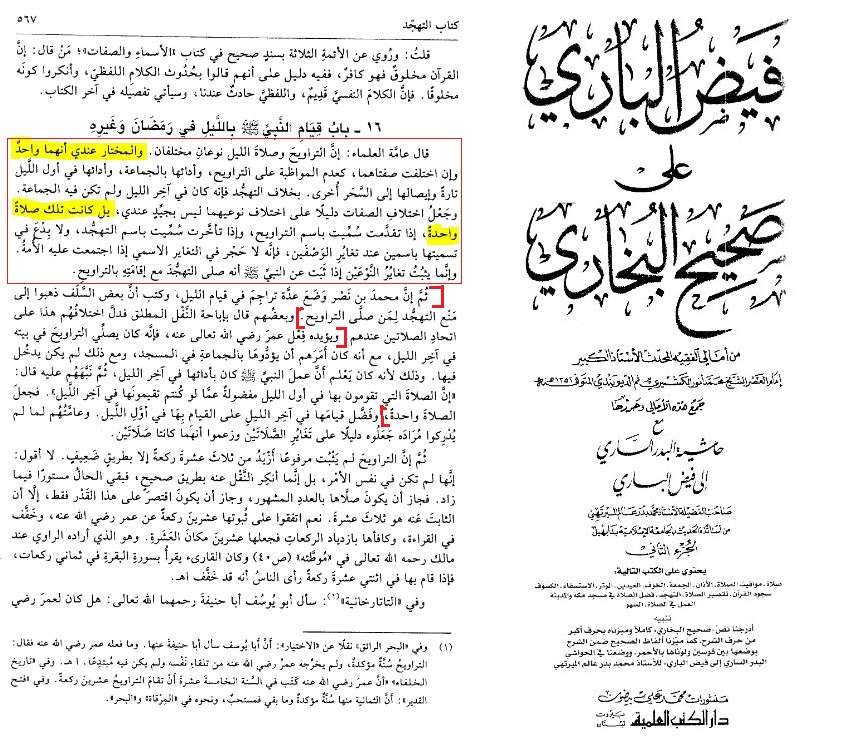 كتاب التهجّد
٥٦٧
قلتُ: ورُوي عن الأئمة الثلاثة بسندٍ صحيح في كتاب «الأسماء والصفات»؛ مَنْ قال: إنَّ
القرآن مخلوقٌ فهو كافرٌ، ففيه دليل على أنهم قالوا بحُدُوث الكلام اللفظيّ، وأنكروا كونَه
مخلوقًا. فإنَّ الكلامَ النفسيَّ قَدِيمٌ، واللفظيَّ حادثٌ عندنا، وسيأتي تفصيله في آخر الكتاب.
١٦ - بابُ قِيَامِ النَّبِيِّ ﷺ بِاللَّيلِ فِي رَمَضَانَ وَغَيرِهِ
قال عامَّة العلماء: إنَّ التراويحَ وصلاةَ الليل نوعانِ مختلفان. والمختار عندي أنهما واحدٌ
وإن اختلفت صفتاهما، كعدم المواظبة على التراويح، وأدائها بالجماعة، وأدائها في أول اللَّيل
تارةً وإيصالها إلى السَّحَر أُخرى. بخلاف التهجُّد فإنه كان في آخِر الليل ولم تكن فيه الجماعة.
وجَعْلُ اختلافِ الصفات دليلًا على اختلاف نوعيهما ليس بجيِّدٍ عندي، بل كانت تلك صلاةً
واحدةً، إذا تقدَّمت سُمِّيت باسم التراويح، وإذا تأخَّرت سُمِّيت باسم التهجُّد، ولا بِدْعَ في
تسميتها باسمين عند تغايُرِ الوَصْفَين، فإنَّه لا حَجْر في التغاير الاسمي إذا اجتمعت عليه الأمةُ.
وإنَّما يثبُتُ تغايُرُ النَّوْعَيْن إذا ثَبَت عن النبيِّ ﷺ أنه صلى التهجُّدَ مع إقامَتِهِ بالتراويحِ.
ثُمَّ إنَّ محمدَ بن نَصْر وَضَعَ عدَّةَ تراجِمَ في قيام الليل، وكتب أنَّ بعض السَّلَف ذهبوا إلى
مَنْع التهجُّدِ لِمَن صلَّى التراويح. وبعضُهم قال بإباحة النَّفْل المطلق فدلَّ اختلافُهم هذا على
اتحادِ الصلاتين عندهم ويؤيده فِعْل عمرَ رضي الله تعالى عنه، فإنَّه كان يصلِّي التراويحَ في بيته
في آخِرِ الليل، مع أنه كان أمَرَهم أن يؤدُّوها بالجماعةِ في المسجد، ومع ذلك لم يكن يدخُل
فيها. وذلك لأنه كان يَعْلم أنَّ عملَ النبيِّ ﷺ كان بأدائها في آخِر الليل، ثُمَّ نبَّهَهُم عليه قال:
«إنَّ الصلاةَ التي تقومون بها في أول الليل مفضولةٌ عمَّا لو كنتم تقيمونَها في آخِر الليل». فجعل
الصلاةَ واحدةً، وفضَّل قيامَها في آخِر الليل على القيام بِهَا في أوَّل اللَّيل. وعامَّتُهم لما لم
يُدْرِكوا مُرَادَه جَعَلُوه دليلًا على تَغَايُر الصَّلاتَيْن وزعموا أنهما كانتا صَلاتَيْن.
ثُمَّ إنَّ التراويحَ لم يَثْبُت مرفوعًا أزْيَدُ من ثلاثَ عشرةَ ركعةً إلا بطريقٍ ضَعيفٍ. لا أقول:
إنَّها لم تكن في نفس الأمْر، بل إنَّما أنكِر النَّقْل عنه بطريقٍ صحيحٍ، فبقي الحالُ مستورًا فيما
زاد. فجاز أن يكونَ صلَّاها بالعددِ المشهور، وجاز أن يكونَ اقتصَرَ على هذا القَدْر فقط، إلَّا أن
الثابتَ عَنه هو ثلاثَ عشرةَ. نعم اتفقوا على ثُبوتها عشرينَ ركعةً عن عمر رضي الله عنه، وخَفَّف
في القراءة، وكافأها بازدياد الركعات فجعلها عشرينَ مكانَ العَشَرةِ. وهو الذي أراده الراوي عند
مالك رحمه الله تعالى في «مُوَطَّئه» (ص٤٠) وكان القارىء يقرأُ بسورةِ البقرةِ في ثماني ركعات،
فإذا قام بها في اثنتي عشْرةَ ركعةً رأى الناسُ أنه قد خَفَّفَ اهـ.
وفي «التاتارخانية»(١): سأل أبو يُوسُف أبا حنيفةَ رحمهما الله تعالى: هل كان لعمرَ رضي
(١) وفي «البحر الرائق» نقلًا عن «الاختيار»: أنَّ أبا يُوسف سأل أبا حنيفةَ عنها. وما فعله عمر رضي الله عنه فقال:
التراويحُ سُنَّةٌ مؤكدةٌ، ولم يخرِّجه عمرُ رضي الله عنه من تلقاءِ نَفْسه ولم يكن فيه مُبتدِعًا. ا هـ. وفي «تاريخ
الخلفاء» «أنَّ عمرَ رضي الله عنه كَتَب في السَّنة الخامسة عشرةَ أنْ تقامَ التراويحُ عشرينَ ركعةً. وفي «فتح
القدير»: أنَّ الثمانيةَ منها سُنَّةٌ مؤكدةٌ وما بقي فمستحبٌ، ونحوه في «المِرْقاة» و«البحر».
فَيضُ البَاري
على
صَحِيح البُخَاري
من أمالي الفقيه المحدّث الأستاذ الكبير
إمام العصر الشيخ محمد أنور الكشميري ثم الديوبندي المتوفى ١٣٥٢ هـ
جمع هذه الأمالي وحررها
مع
حاشية البدر الساري
إلى فيض الباري
صاحب الفضيلة الأستاذ محمد بدر عالم الميرتهي
من أساتذة الحديث بالجامعة الإسلامية بدابهيل
الجزء الثاني
يحتوي على الكتب التالية:
صلاة، مواقيت الصلاة، الأذان، الجمعة، الخوف، العيدين، الوتر، الاستسقاء، الكسوف
سجود القرآن، تقصير الصلاة، التهجد، فضل الصلاة في مسجد مكة والمدينة
العمل في الصلاة، السهو
تنبيه
أدرجنا نصّ صحيح البخاري، كاملاً وميزناه بحرف أكبر
من حرف الشرح، كما ميّزنا ألفاظ الصحيح ضمن الشرح
بوضعها بين قوسين ولوّناها بالأحمر، ووضعنا في الحواشي
البدر الساري إلى فيض الباري، للأستاذ محمد بدر عالم الميرتهي
منشورات محمد علي بيضون
دار الكتب العلمية
بيروت لبنان